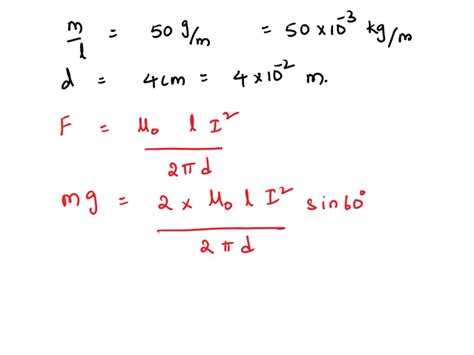 m/l = 50 g/m = 50 × 10⁻³ kg/m
d = 4cm = 4 × 10⁻² m.
F = μ₀ l I² / 2πd
mg = 2 × μ₀ l I² / 2πd sin60°